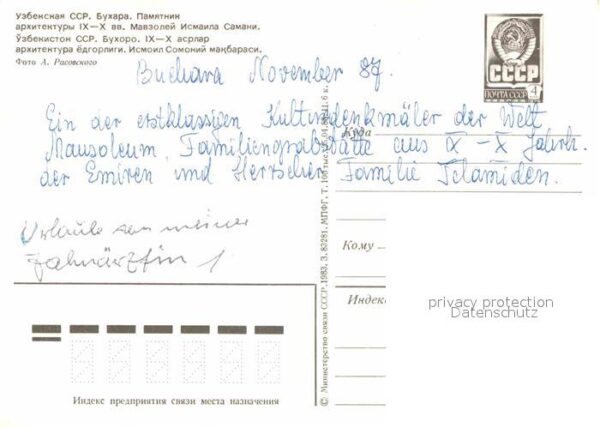 Узбекская ССР. Бухара. Памятник
архитектуры IX—X вв. Мавзолей Исмаила Самани.
Ўзбекистон ССР. Бухоро. IX—X асрлар
архитектура ёдгорлиги. Исмоил Сомоний мақбараси.
Фото А. Расовского
СССР
ПОЧТА СССР 4
Buchara November 87.
Ein der erstklassigen Kulturdenkmäler der Welt
Mausoleum, Familiengrabstätte aus IX-X Jahrh.
der Emiren und Herrscher Familie Islamiden.
Urlaub von meiner
Zahnärztin
Куда
Кому
Индекс
privacy protection
Datenschutz
© Министерство связи СССР, 1983, З. 83281. МПФГ. Т.
Индекс предприятия связи места назначения